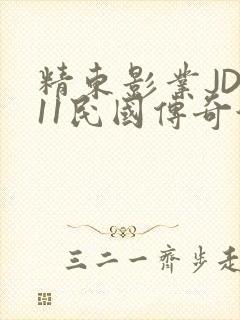 精東影業JD
11民國傳奇
三二一齊步走